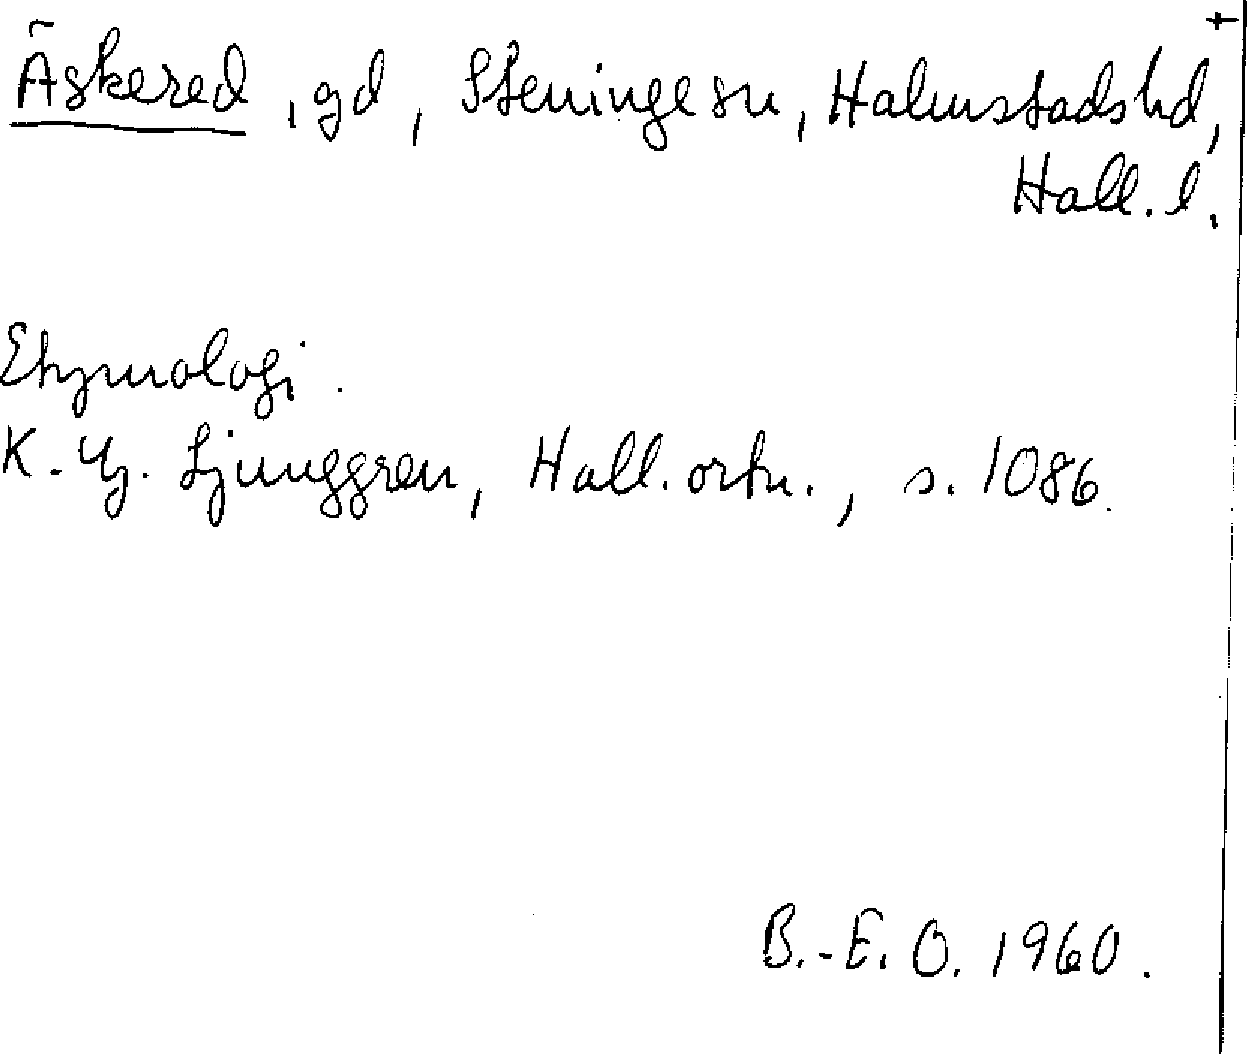 Äskered, gd, Steninge sn, Halmstads hd,
Hall. l.
Etymologi.
K.-G. Ljunggren, Hall. ortn., s. 1086.
B.-E. O. 1960.